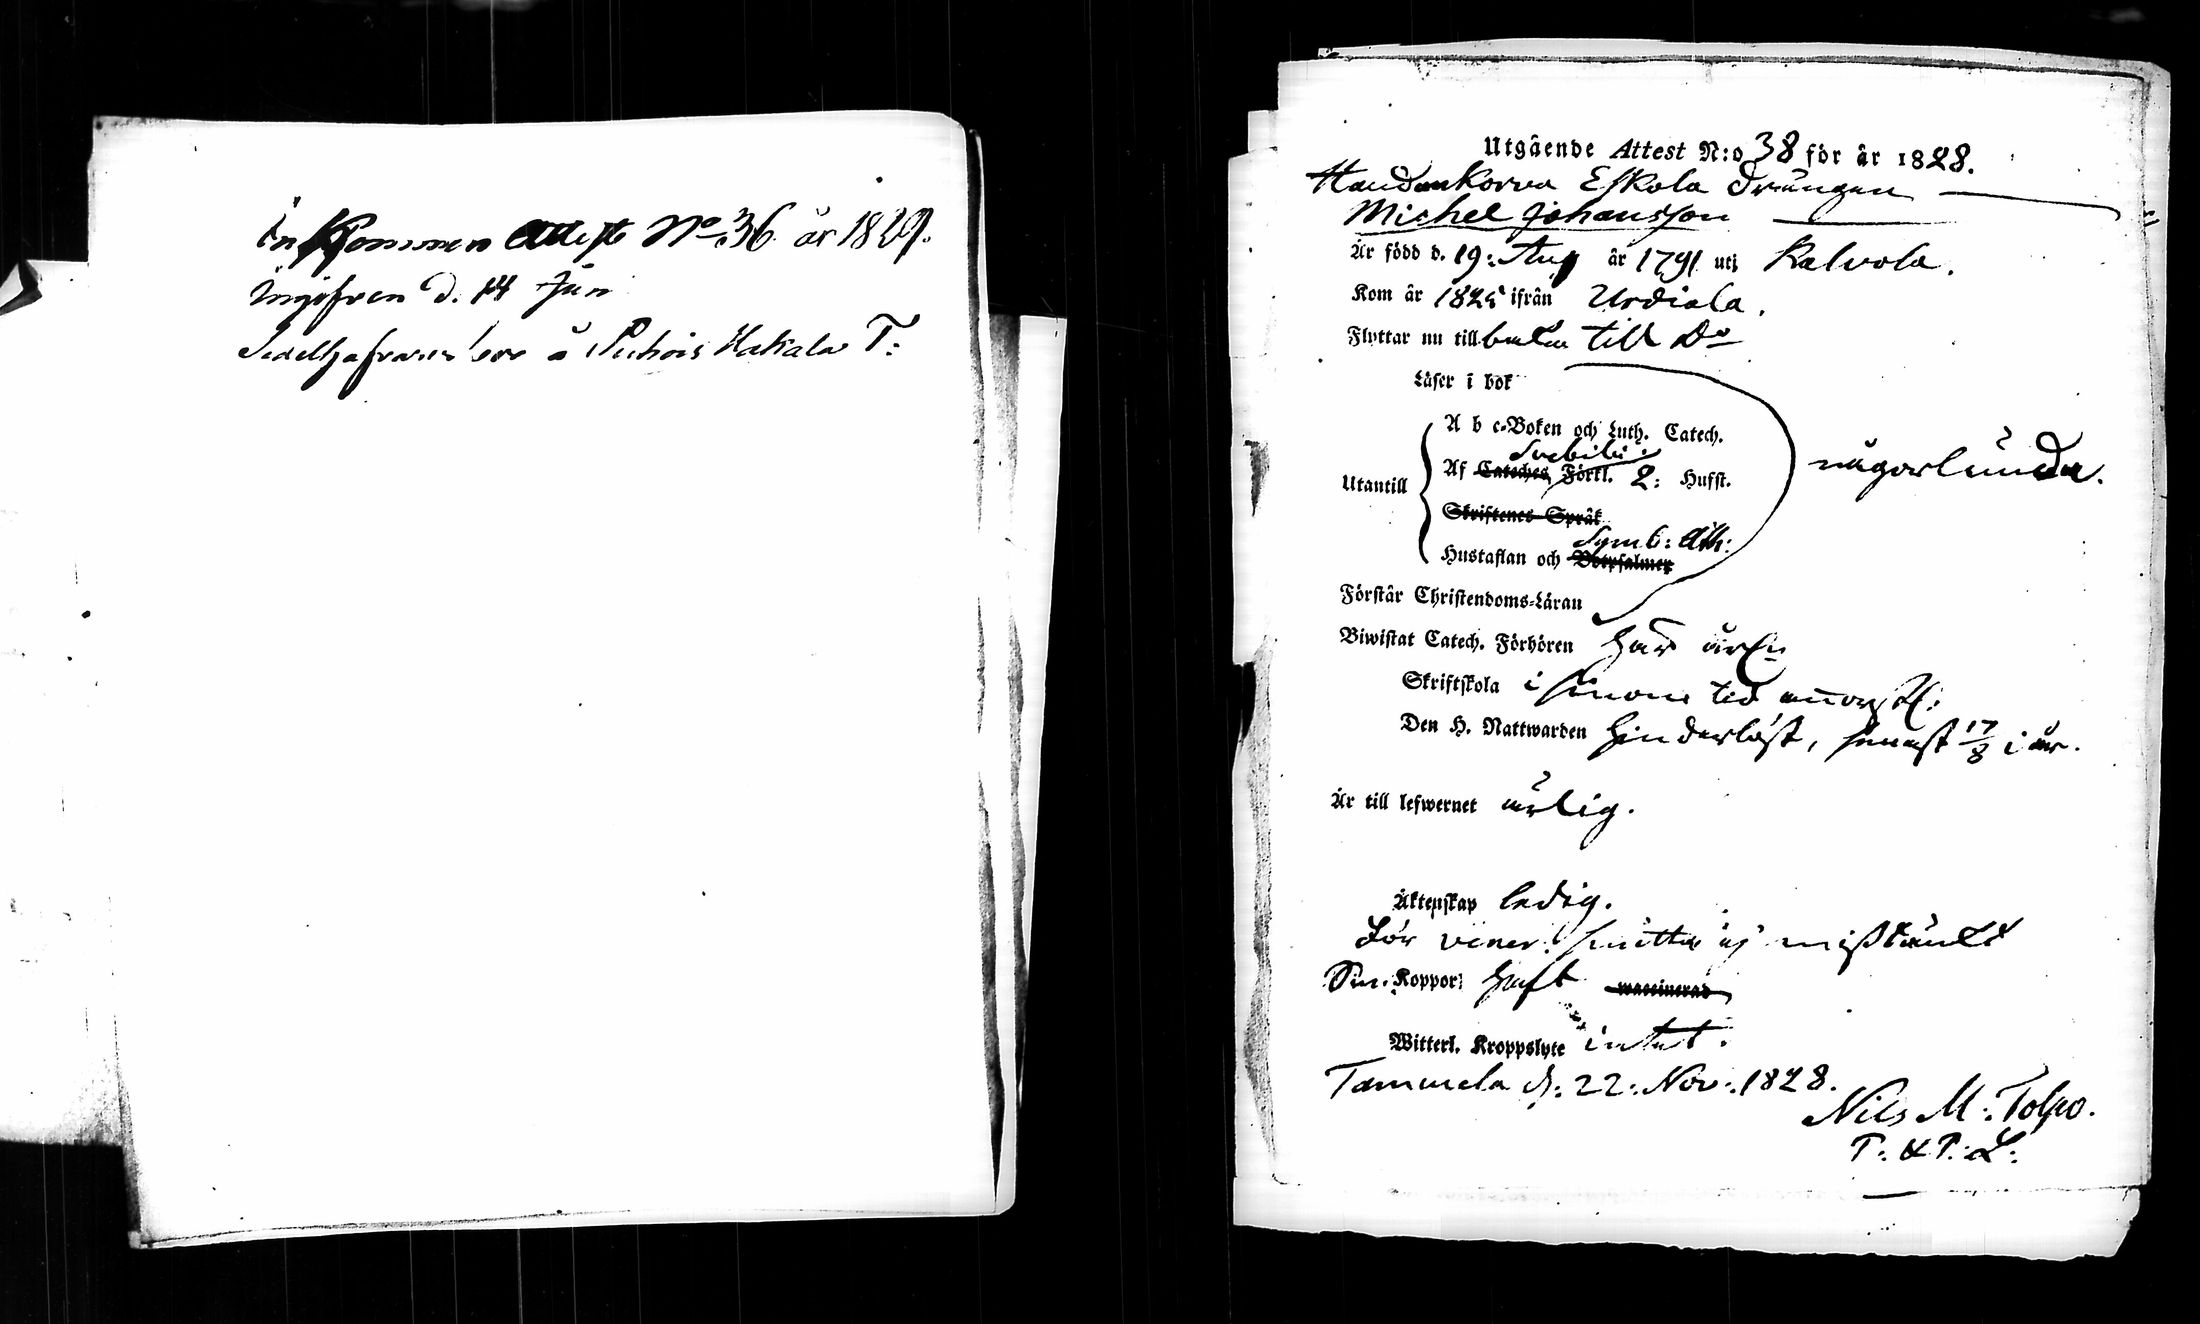 Inkommen Attest No 36. år 1829.
Ingifven d. 14 Jun
Sedelhafvaren bor å Puhois Hakala T:
Utgående Attest N:o 38 för år 1828.
Haudankorva Eskola Drängen
Michel Johansson
Är född d. 19: Aug år 1791 uti Kalvola.
Kom år 1825 ifrån Urdiala.
Flyttar nu tillbaka till Do
Läser i bok
A b c-Boken och Luth. Catech.
Svebilii:
Utantill Af Cateches Förkl. 2: Hufst. någorlunda.
Skriftenes Språk
Symb: Ath:
Hustaflan och Botpsalmer
Förstår Christendoms-Läran
Biwistat Catech. Förhören här årl:n
Skriftskola i sinom tid annorst:
Den H. Nattwarden hinderlöst, senast 17/8 i år.
Är till lefwernet ärlig.
Äktenskap ledig.
För vener: smitta ej misstänkt
Koppor haft waccinerad
Witterl. Kroppslyte intet.
Tammela d: 22: Nov: 1828.
Nils M: Tolpo.
P: & P: L: